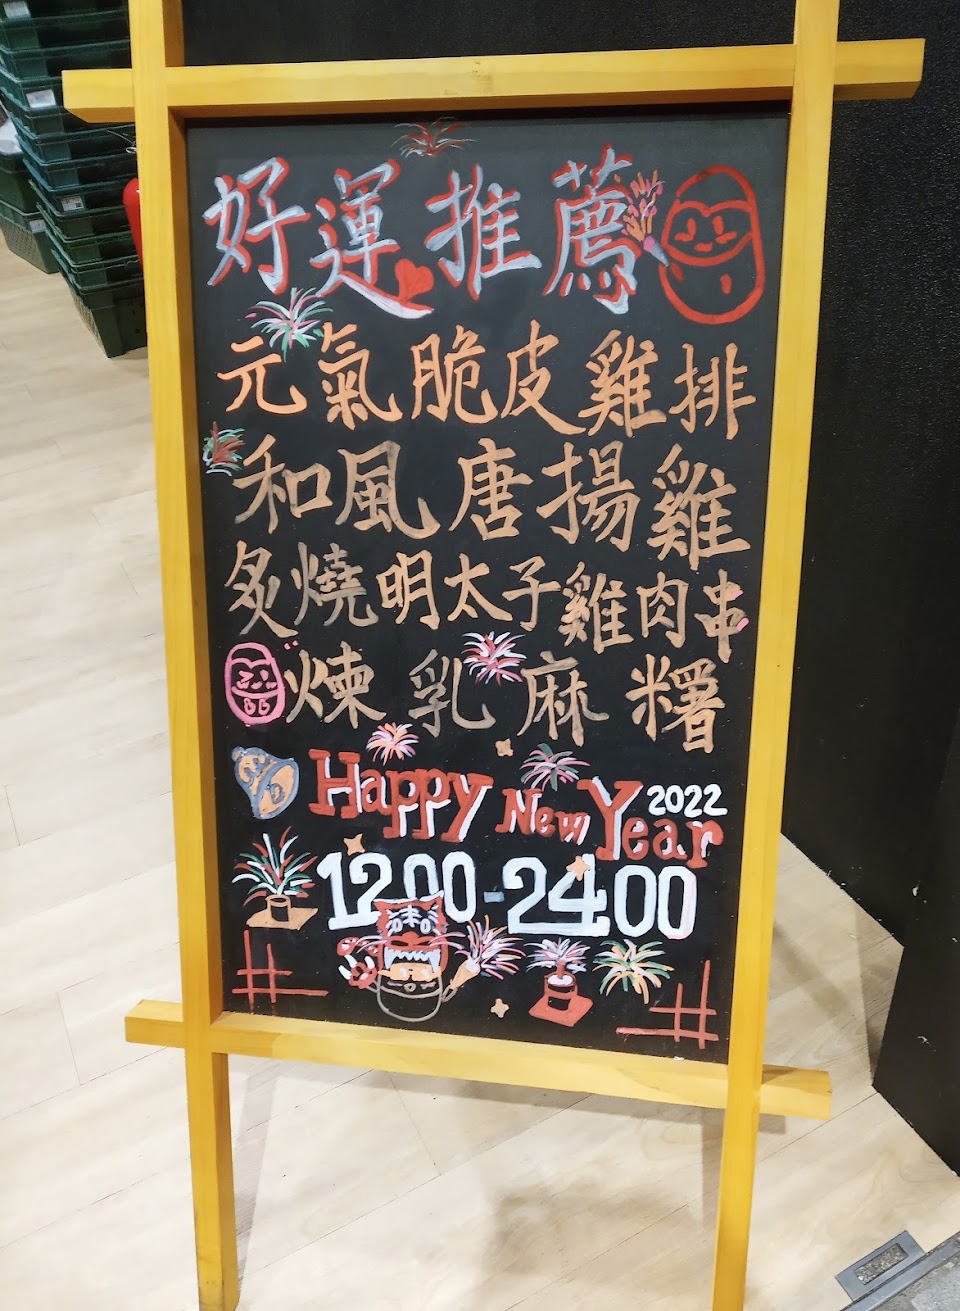 好運推薦
元氣脆皮雞排
和風唐揚雞
炙燒明太子雞肉串
煉乳麻糬
Happy New Year 2022
12:00-24:00